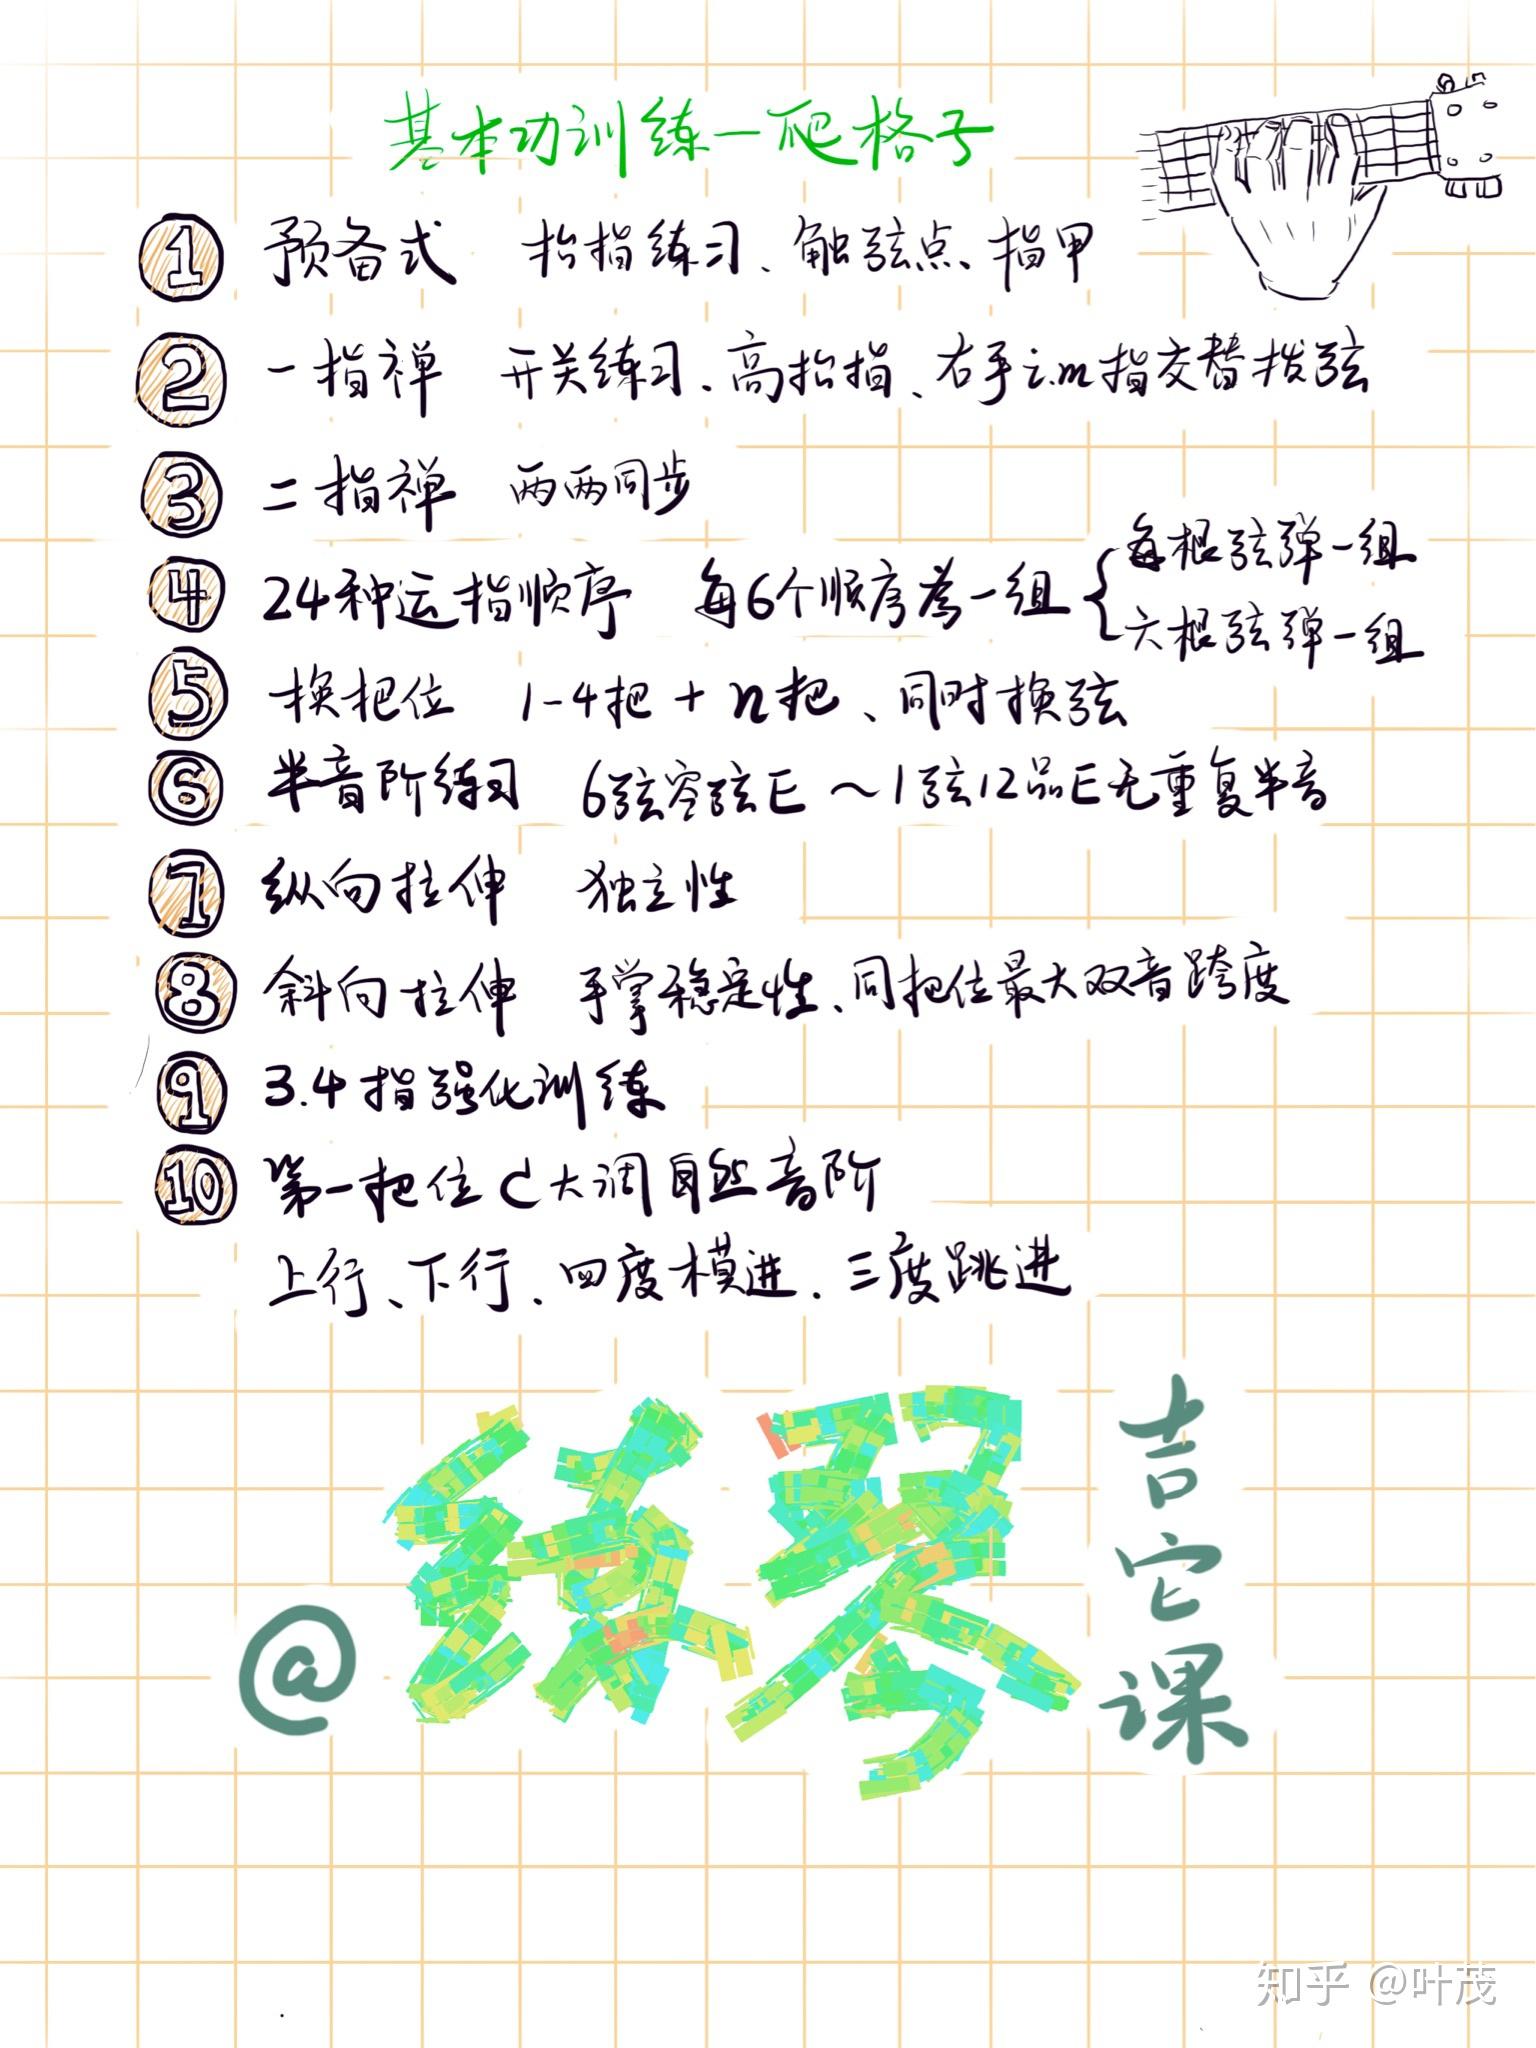 基本功训练一爬格子
① 预备式 抬指练习、触弦点、指甲
② 一指禅 开关练习、高抬指、右手i.m指交替拨弦
③ 二指禅 两两同步
④ 24种运指顺序 每6个顺序为一组{每根弦弹一组
六根弦弹一组
⑤ 换把位 1-4把+n把、同时换弦
⑥ 半音阶练习 6弦空弦E～1弦12品E无重复半音
⑦ 纵向拉伸 独立性
⑧ 斜向拉伸 手掌稳定性、同把位最大双音跨度
⑨ 3.4指强化训练
⑩ 第一把位C大调自然音阶
上行、下行、四度模进、三度跳进
@练琴吉它课
知乎 @叶茂